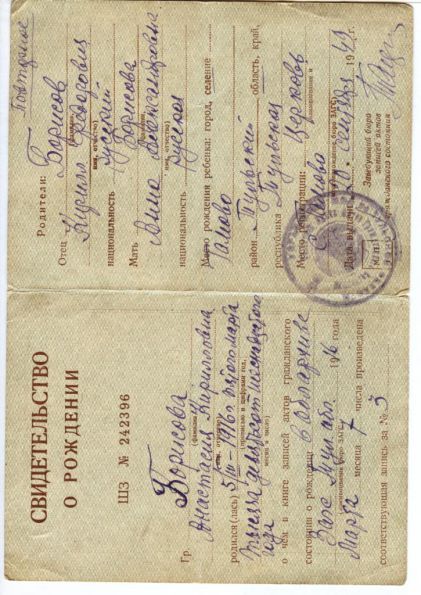 СВИДЕТЕЛЬСТВО
О РОЖДЕНИИ
ШЗ № 242396
Гр. Борисова
(фамилия)
Анастасия Кирилловна
имя, отчество
родился (лась) 5/III-1916 г. пятого марта
(прописью и цифрами год,
месяц и число)
тысяча девятьсот шестнадцатого
года
о чем в книге записей актов гражданского
состояния о рождении в облархиве
Загс Тул обл. 1916 года
Марта месяца 7 числа произведена
соответствующая запись за № 3
Повторное
Родители:
Отец Борисов
(фамилия,
Кирилл
имя, отчество)
национальность русский
Мать Борисова
(фамилия,
Анна
имя, отчество)
национальность русская
Место рождения ребенка: город, селение
район область, край,
республика Тульская
Место регистрации: церковь
(наименование и
местонахождение бюро ЗАГС)
Дата выдачи 10 сентября 1949
М.П.
Заведующий бюро
записей актов
гражданского состояния